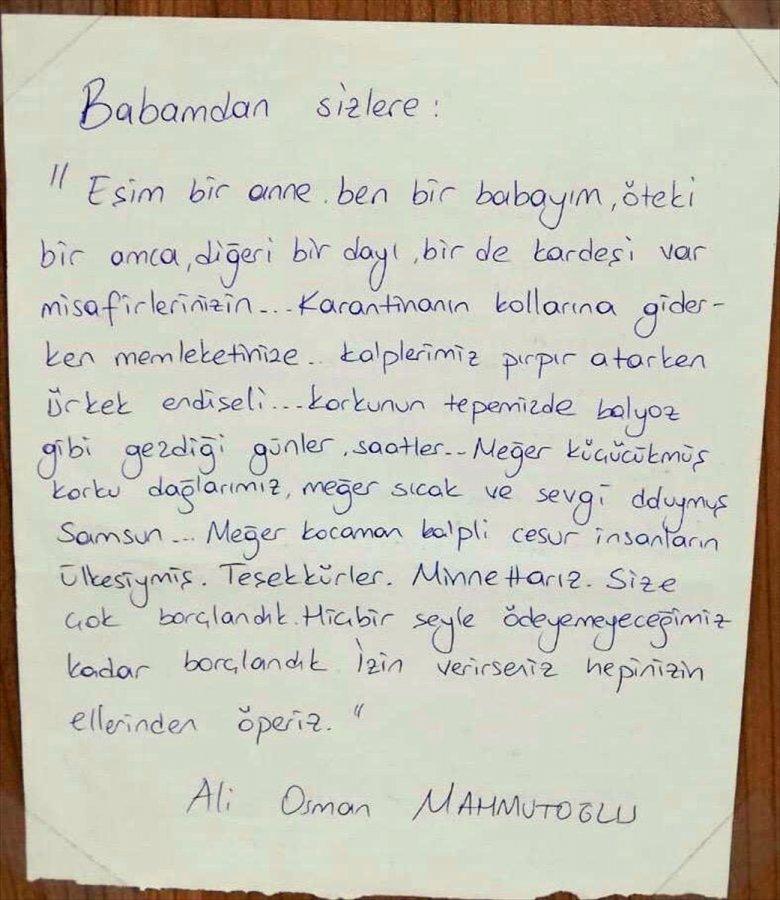 Babamdan sizlere:
" Eşim bir anne. ben bir babayım, öteki
bir amca, diğeri bir dayı, bir de kardeşi var
misafirlerinizin... Karantinanın kollarına gider-
ken memleketinize.. kalplerimiz pırpır atarken
ürkek endişeli... korkunun tepemizde balyoz
gibi gezdiği günler, saatler.. Meğer küçücükmüş
korku dağlarımız, meğer sıcak ve sevgi dduymuş
Samsun... Meğer kocaman kalpli cesur insanların
ülkesiymiş. Teşekkürler. Minnettarız. Size
çok borçlandık. Hiçbir şeyle ödeyemeyeceğimiz
kadar borçlandık İzin verirseniz hepinizin
ellerinden öperiz. "
Ali Osman MAHMUTOĞLU